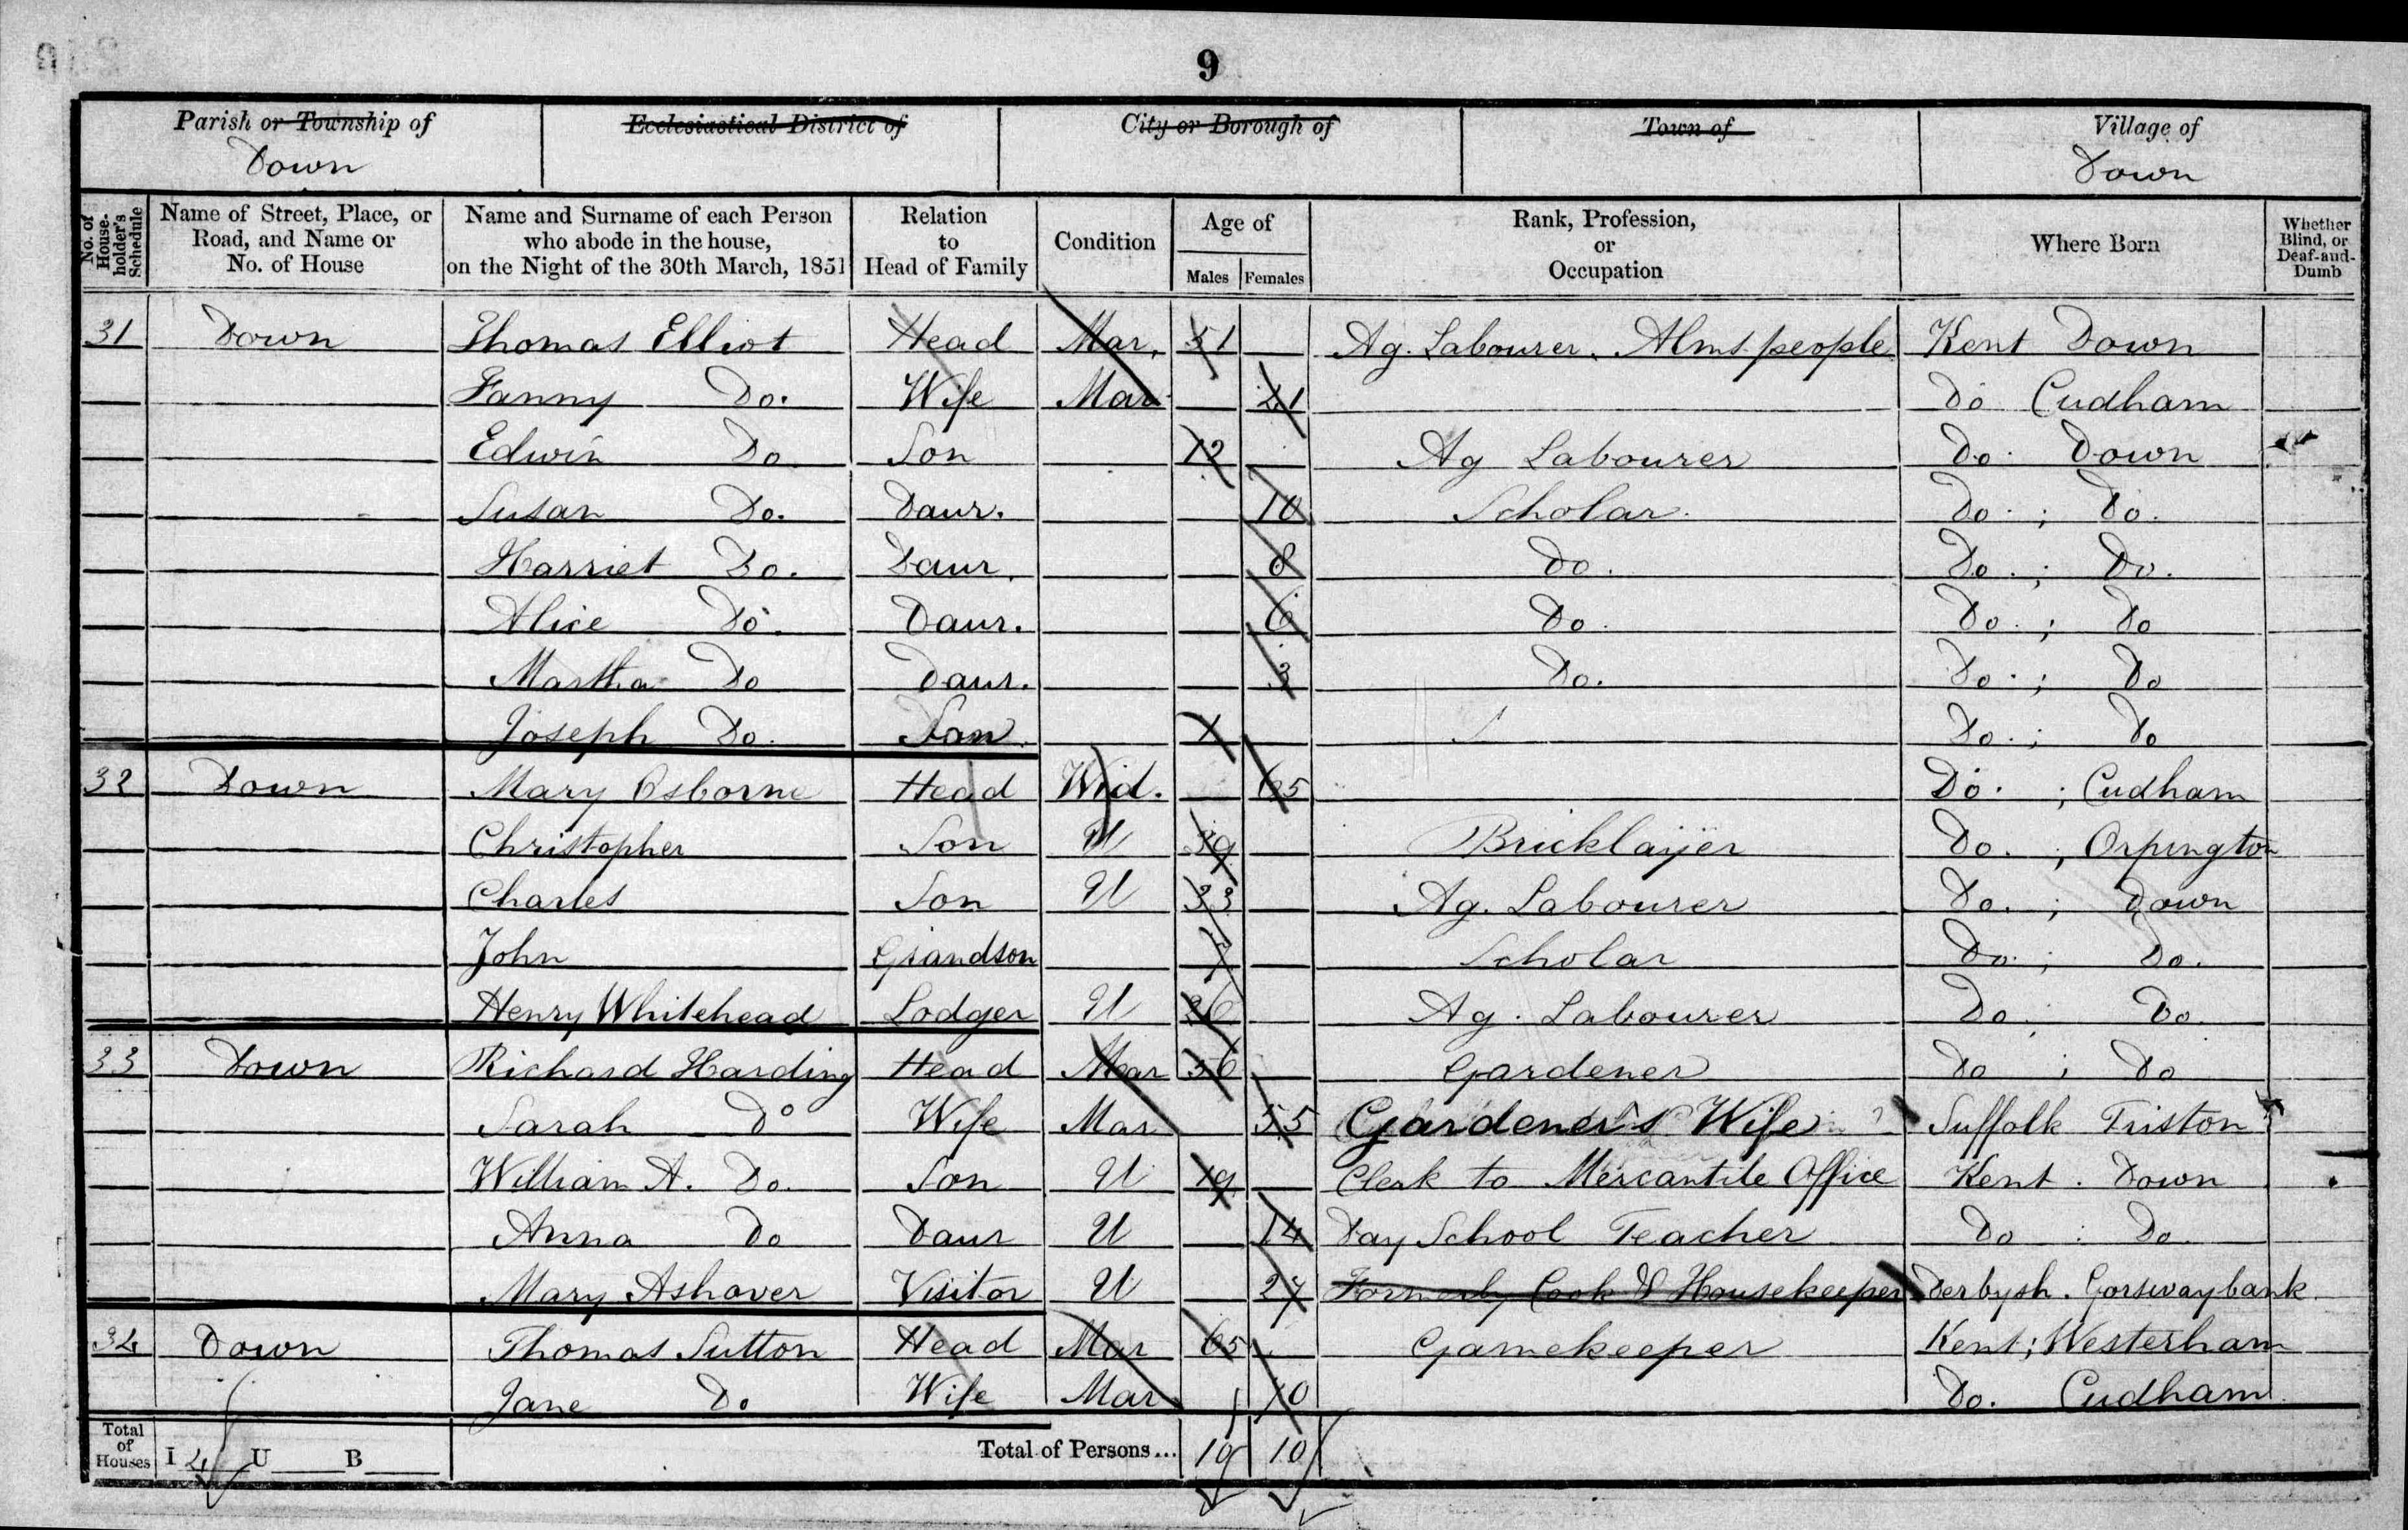 9
Parish or Township of Ecclesiastical District of City or Borough of Town of Village of
Down Down
No. of House-holder's Schedule Name of Street, Place, or Road, and Name or No. of House Name and Surname of each Person who abode in the house, on the Night of the 30th March, 1851 Relation to Head of Family Condition Age of Males Females Rank, Profession, or Occupation Where Born Whether Blind, or Deaf-and-Dumb
31 Down Thomas Elliot Head Mar. 51 Ag. Labourer. Alms people Kent Down
Fanny Do. Wife Mar Do Cudham
Edwin Do Son 12 Ag Labourer Do. Down
Susan Do. Daur. 10 Scholar. Do. ; Do.
Harriet Do. Daur. 8 Do. Do. ; Do.
Alice Do. Daur. 6 Do. Do. ; Do
Martha Do Daur. 3 Do. Do. ; Do
Joseph Do. Son 1 Do. ; Do
32 Down Mary Osborne Head Wid. 65 Do. ; Cudham
Christopher Son U Bricklayer Do. ; Orpington
Charles Son U 33 Ag. Labourer Do. ; Down
John Grandson Scholar Do. ; Do.
Henry Whitehead Lodger U Ag. Labourer Do ; Do.
33 Down Richard Harding Head Mar 56 Gardener Do ; Do
Sarah Do Wife Mar 55 Gardener's Wife Suffolk Friston
William A. Do. Son U 19 Clerk to Mercantile Office Kent . Down
Anna Do Daur U 14 Day School Teacher Do : Do.
Mary Ashover Visitor U 27 Formerly Cook & Housekeeper Derbysh. Gorswaybank
34 Down Thomas Sutton Head Mar 65 Gamekeeper Kent; Westerham
Jane Do Wife Mar 70 Do. Cudham
Total of Houses I 4 U B Total of Persons... 10 10